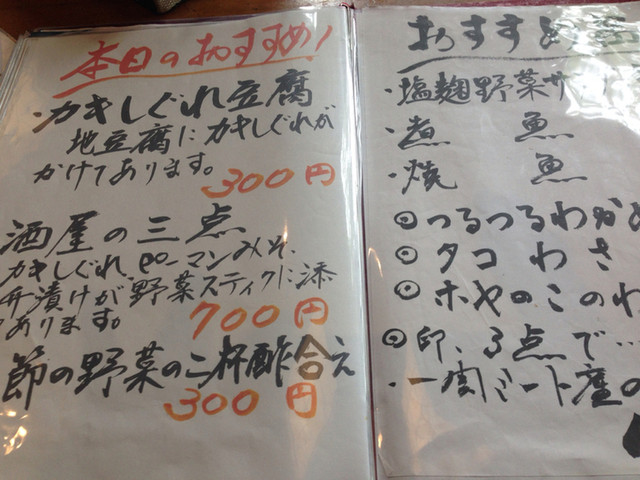 本日のおすすめ!
・カキしぐれ豆腐
地豆腐にカキしぐれが
かけてあります。
300円
酒屋の三点
カキしぐれ、ピーマンみそ、
弁漬けが、野菜スティクに添
えあります。
700円
節の野菜の二杯酢合え
300円
おすすめ
・塩麹野菜サ
・煮 魚
・焼 魚
◎つるつるわかめ
◎タコ わさ
◎ホヤのこのわ
◎印、3点で…
・一関ミート